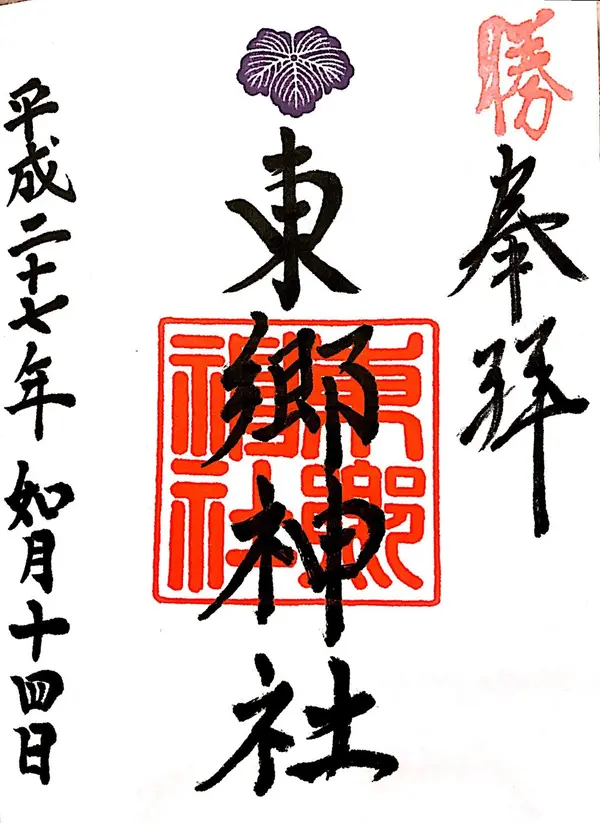 勝
奉拝
東郷神社
東郷神社
平成二十七年如月十四日